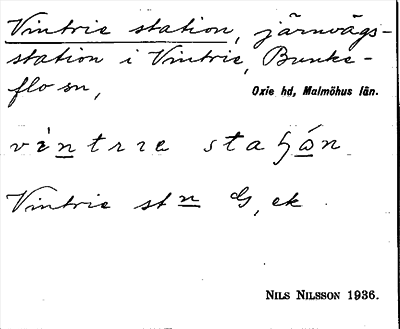 Vintrie station, järnvägs-
station i Vintrie, Bunke-
flo sn,
Oxie hd, Malmöhus län.
vìntrıe staʃón
Vintrie stn G, ek.
NILS NILSSON 1936.